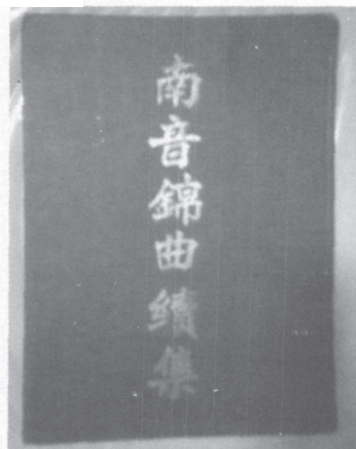 南音錦曲續集